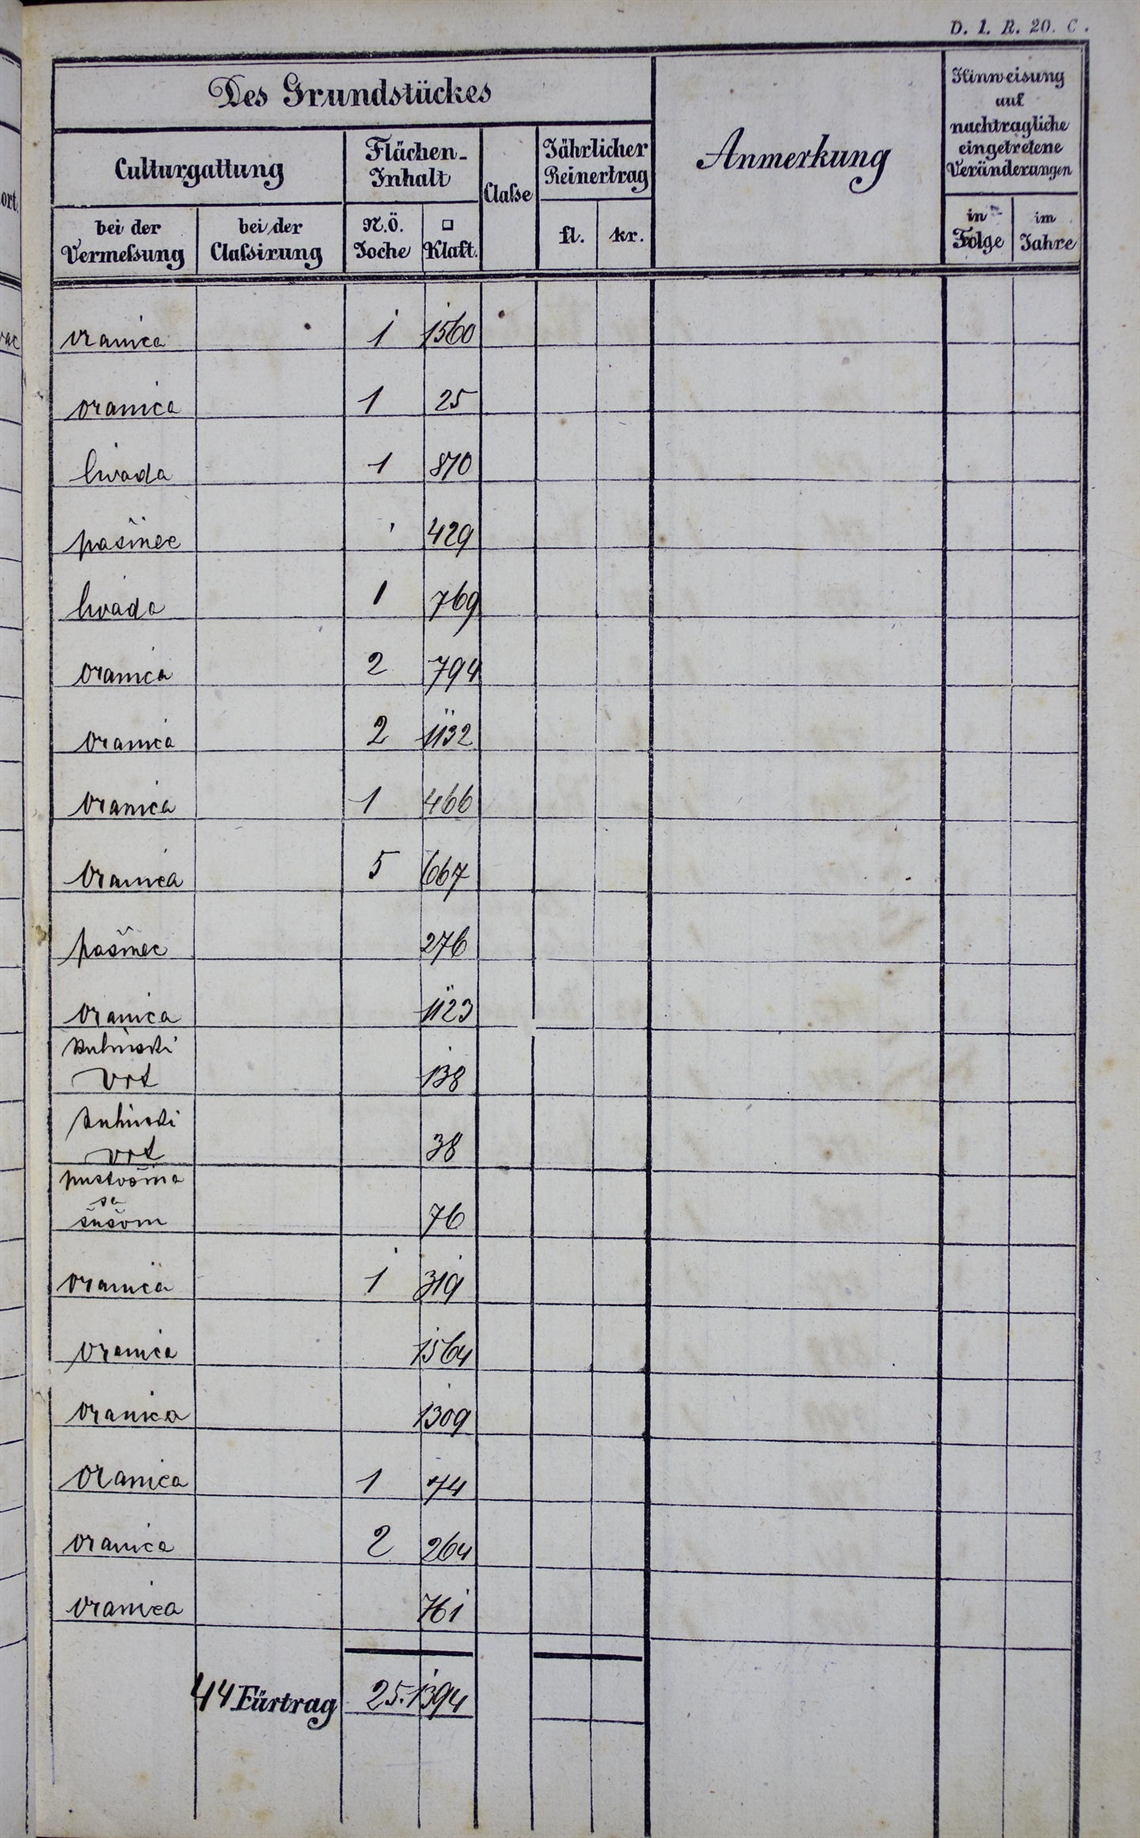 D. 1. R. 20. C.
Des Grundstückes
Anmerkung
Hinweisung
auf
nachtragliche
eingetretene
Veränderungen
Culturgattung
Flächen-
Inhalt
Classe
Jährlicher
Reinertrag
bei der
Vermessung
bei der
Classirung
N.Ö.
Joche
□
Klaft.
fl.
kr.
in
Folge
im
Jahre
oranica 1 1560
oranica 1 25
livada 1 870
pašnec 429
livada 1 769
oranica 2 794
oranica 2 1132
oranica 1 466
oranica 5 667
pašnec 276
oranica 1123
kuhinski
vrt 138
kuhinski
vrt 38
pustošina
sa
šašom 76
oranica 1 319
oranica 1564
oranica 1309
oranica 1 74
oranica 2 264
oranica 761
44 Fürtrag 25. 1394